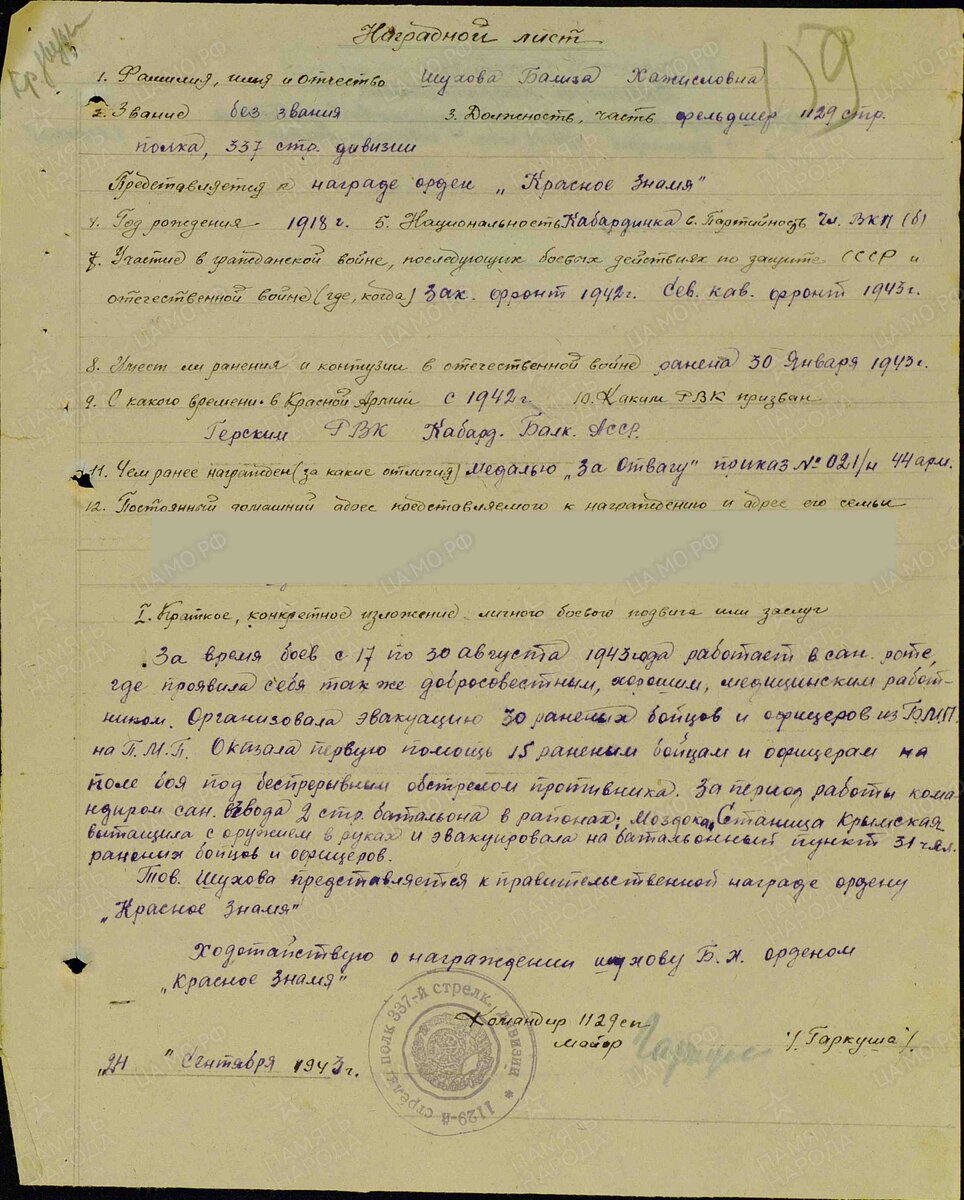 159
Наградной лист
1. Фамилия, имя и отчество Шухова Бализа Хажисловна
2. Звание без звания 3. Должность, часть фельдшер 1129 стр.
полка, 337 стр. дивизии
Представляется к награде орден „Красное Знамя"
4. Год рождения 1918 г. 5. Национальность Кабардинка 6. Партийность Чл. ВКП(б)
7. Участие в гражданской войне, последующих боевых действиях по защите СССР и
отечественной войне (где, когда) Зак. фронт 1942 г. Сев. кав. фронт 1943 г.
8. Имеет ли ранения и контузии в отечественной войне ранена 30 Января 1943 г.
9. С какого времени в Красной Армии с 1942 г. 10. Каким РВК призван
Терским РВК Кабард. Балк. АССР.
11. Чем ранее награжден (за какие отличия) Медалью „За Отвагу" приказ № 021/н 44 арм.
12. Постоянный домашний адрес представляемого к награждению и адрес его семьи
I. Краткое, конкретное изложение личного боевого подвига или заслуг
За время боев с 17 по 30 августа 1943 года работает в сан. роте,
где проявила себя так же добросовестным, хорошим, медицинским работ-
ником. Организовала эвакуацию 30 раненых бойцов и офицеров из Б.М.П.
на П.М.П. Оказала первую помощь 15 раненым бойцам и офицерам на
поле боя под беспрерывным обстрелом противника. За период работы кома-
ндиром сан. взвода 2 стр. батальона в районах: Моздока, Станица Крымская
вытащила с оружием в руках и эвакуировала на батальонный пункт 31 чел.
раненых бойцов и офицеров.
Тов. Шухова представляется к правительственной награде ордену
„Красное Знамя"
Ходотайствую о награждении Шухову Б. Х. орденом
„Красное Знамя"
Командир 1129 сп
майор /Гаркуша/.
„24" Сентября 1943 г.
1129-й стрелк. полк 337-й стрелк. дивизии